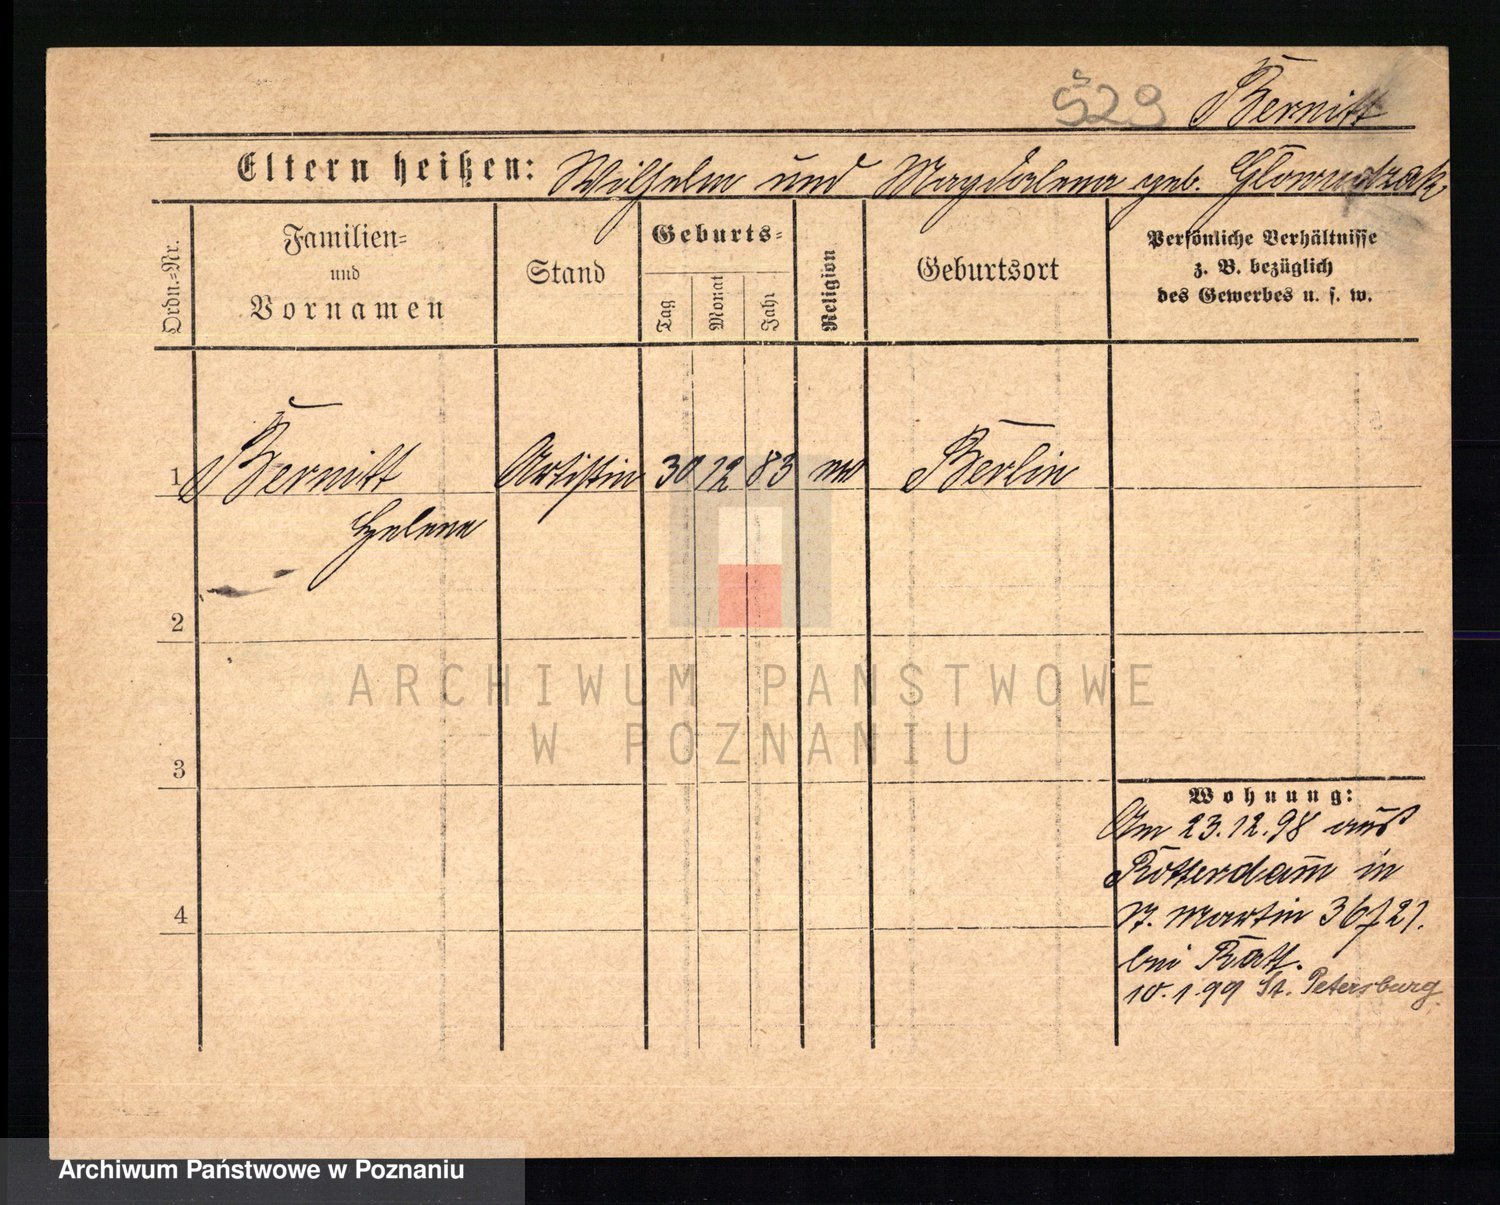 529 Bernitt
Eltern heißen: Wilhelm und Magdalena geb.
Ordn.=Nr.
Familien=
und
Vornamen
Stand
Geburts=
Tag
Monat
Jahr
Religion
Geburtsort
Persönliche Verhältnisse
z. B. bezüglich
des Gewerbes u. s. w.
1 Bernitt Artistin 30 12 83 Berlin
Helene
2
3
4
Wohnung:
Am 23.12.98 aus
Rotterdam in
St. Martin 36/21.
bei Ratt.
10.1.99 St. Petersburg.
ARCHIWUM PAŃSTWOWE
W POZNANIU
Archiwum Państwowe w Poznaniu